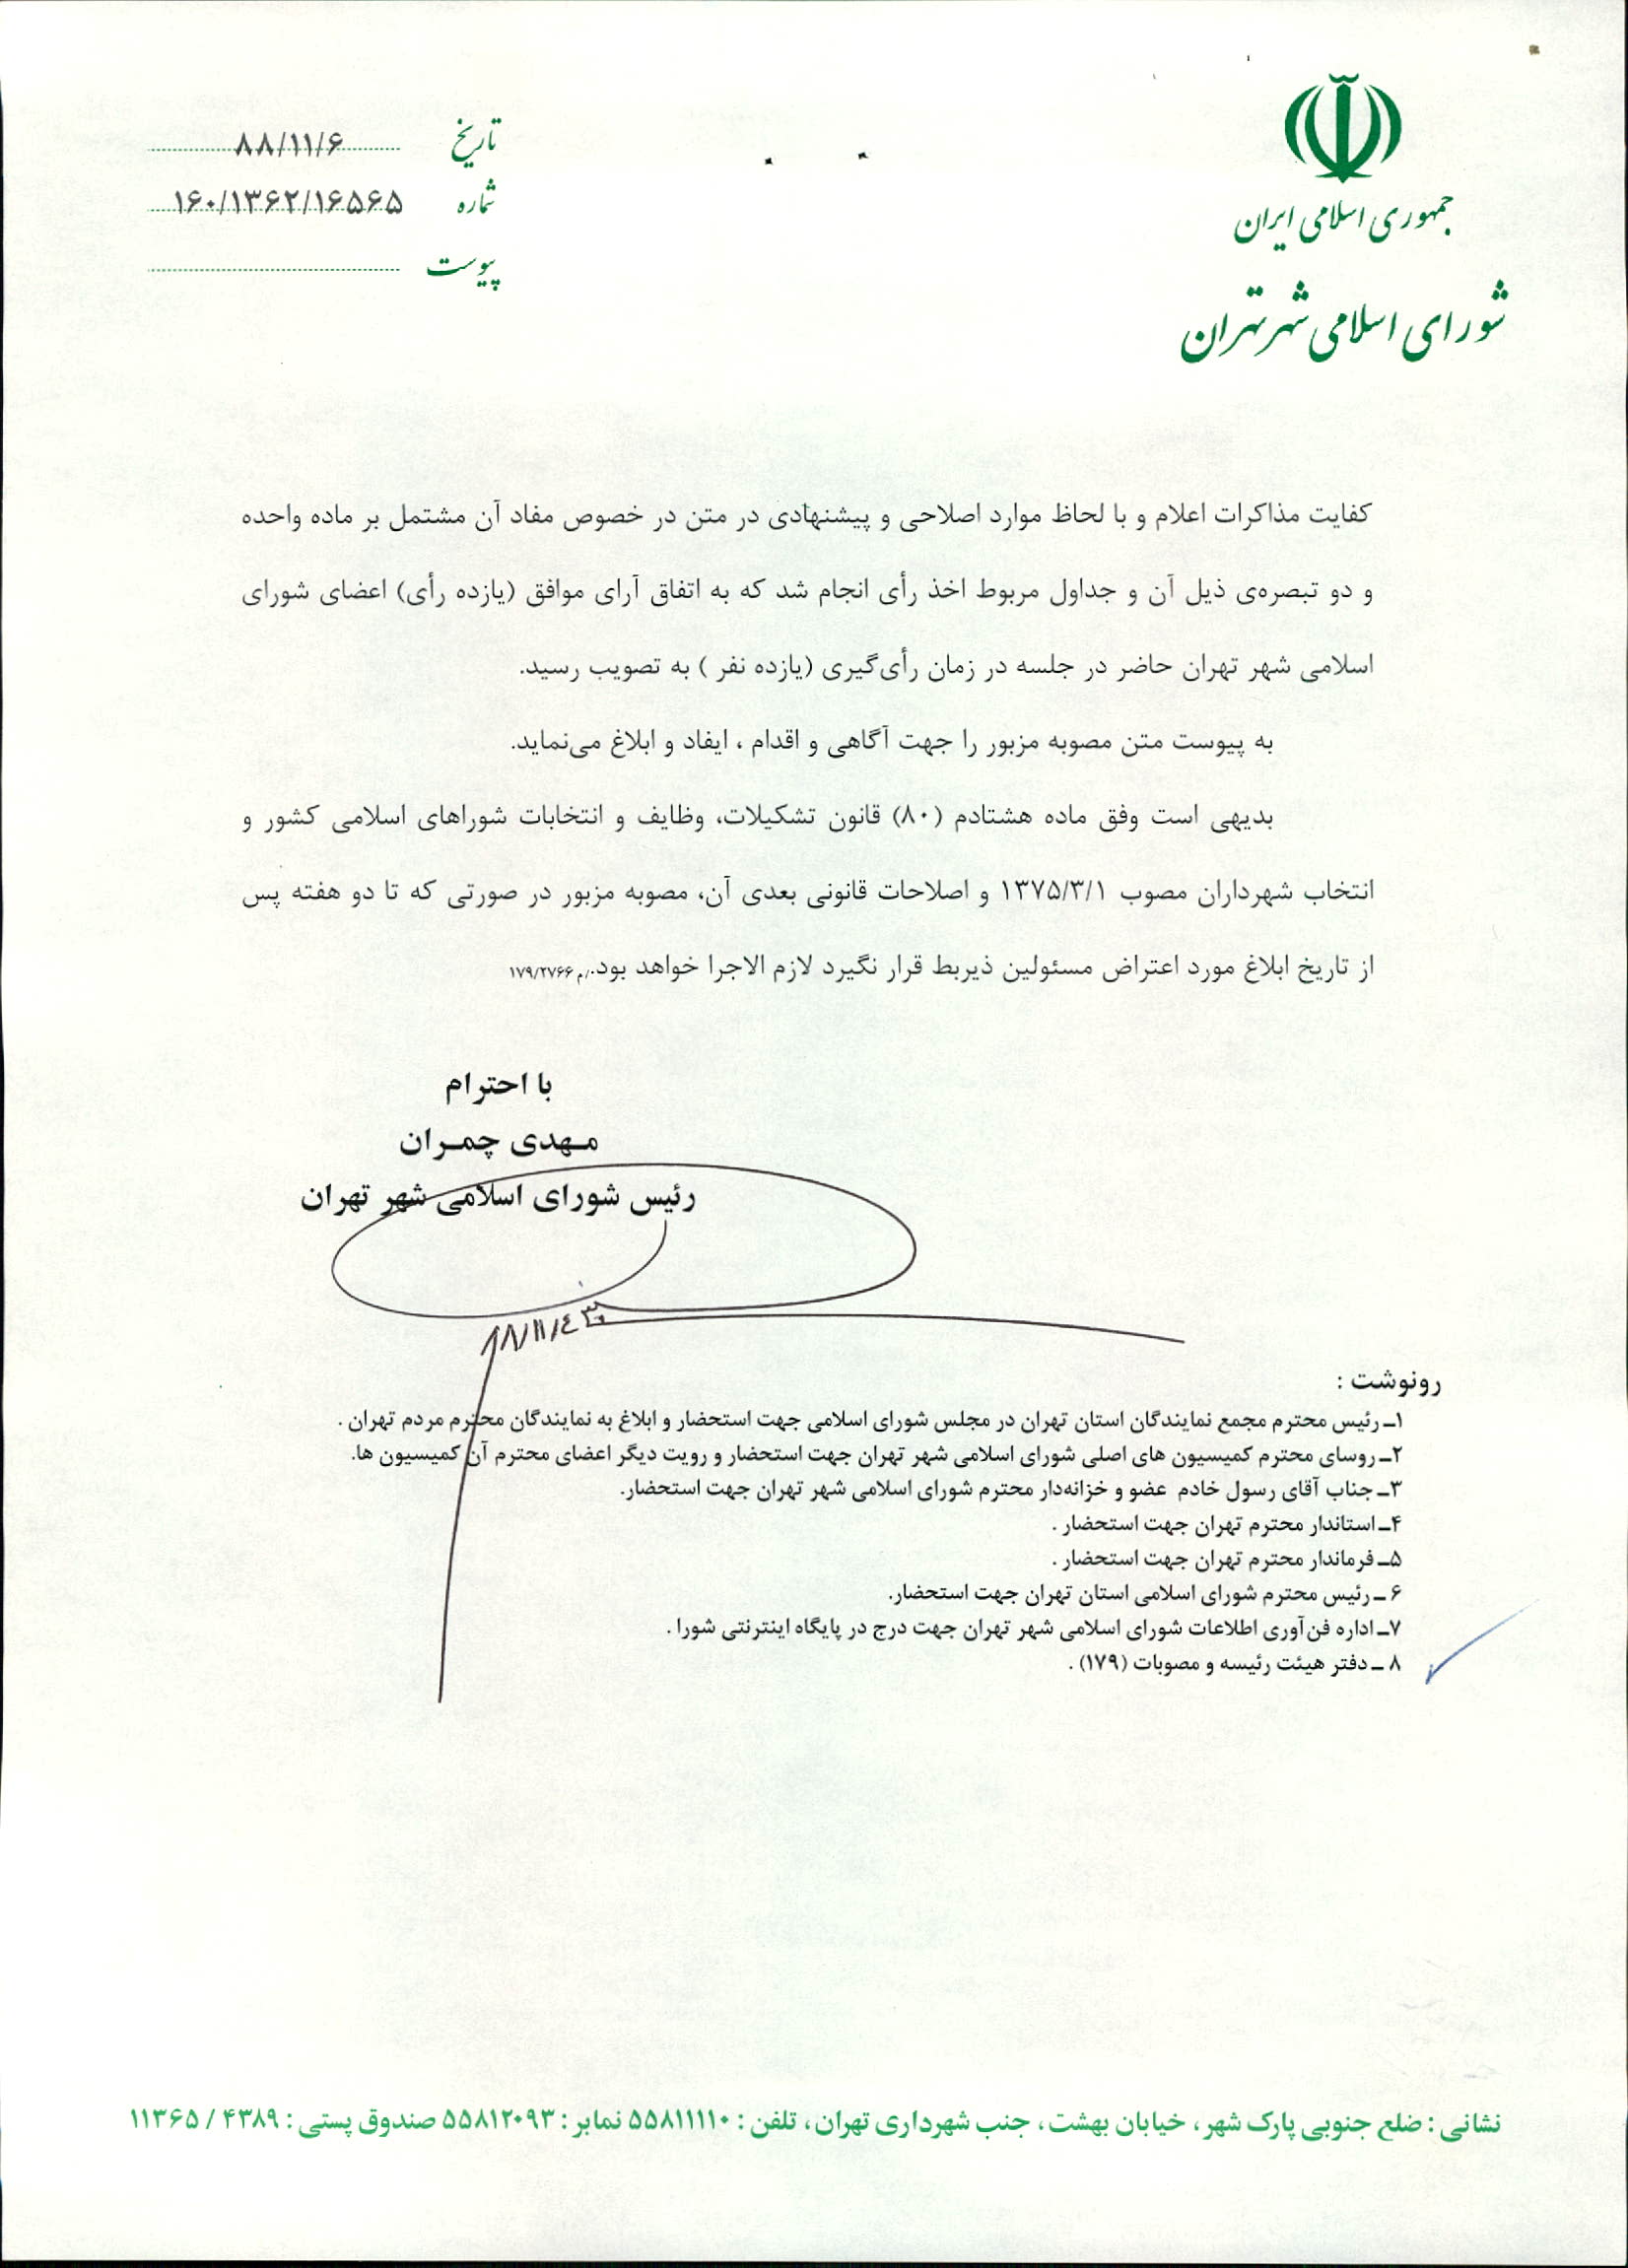 جمهوری اسلامی ایران
شورای اسلامی شهر تهران
تاریخ ۸۸/۱۱/۶
شماره ۱۶۰/۱۳۶۲/۱۶۵۶۵
پیوست
کفایت مذاکرات اعلام و با لحاظ موارد اصلاحی و پیشنهادی در متن در خصوص مفاد آن مشتمل بر ماده واحده
و دو تبصره‌ی ذیل آن و جداول مربوط اخذ رأی انجام شد که به اتفاق آرای موافق (یازده رأی) اعضای شورای
اسلامی شهر تهران حاضر در جلسه در زمان رأی‌گیری (یازده نفر ) به تصویب رسید.
به پیوست متن مصوبه مزبور را جهت آگاهی و اقدام ، ایفاد و ابلاغ می‌نماید.
بدیهی است وفق ماده هشتادم (۸۰) قانون تشکیلات، وظایف و انتخابات شوراهای اسلامی کشور و
انتخاب شهرداران مصوب ۱۳۷۵/۳/۱ و اصلاحات قانونی بعدی آن، مصوبه مزبور در صورتی که تا دو هفته پس
از تاریخ ابلاغ مورد اعتراض مسئولین ذیربط قرار نگیرد لازم الاجرا خواهد بود./م ۱۷۹/۲۷۶۶
با احترام
مـهدی چمـران
رئیس شورای اسلامی شهر تهران
رونوشت :
۱ـ رئیس محترم مجمع نمایندگان استان تهران در مجلس شورای اسلامی جهت استحضار و ابلاغ به نمایندگان محترم مردم تهران .
۲ـ روسای محترم کمیسیون های اصلی شورای اسلامی شهر تهران جهت استحضار و رویت دیگر اعضای محترم آن کمیسیون ها.
۳ـ جناب آقای رسول خادم عضو و خزانه‌دار محترم شورای اسلامی شهر تهران جهت استحضار.
۴ـ استاندار محترم تهران جهت استحضار .
۵ـ فرماندار محترم تهران جهت استحضار .
۶ ـ رئیس محترم شورای اسلامی استان تهران جهت استحضار.
۷ـ اداره فن‌آوری اطلاعات شورای اسلامی شهر تهران جهت درج در پایگاه اینترنتی شورا .
۸ ـ دفتر هیئت رئیسه و مصوبات (۱۷۹) .
نشانی : ضلع جنوبی پارک شهر ، خیابان بهشت ، جنب شهرداری تهران ، تلفن : ۵۵۸۱۱۱۱۰ نمابر : ۵۵۸۱۲۰۹۳ صندوق پستی : ۴۳۸۹ / ۱۱۳۶۵